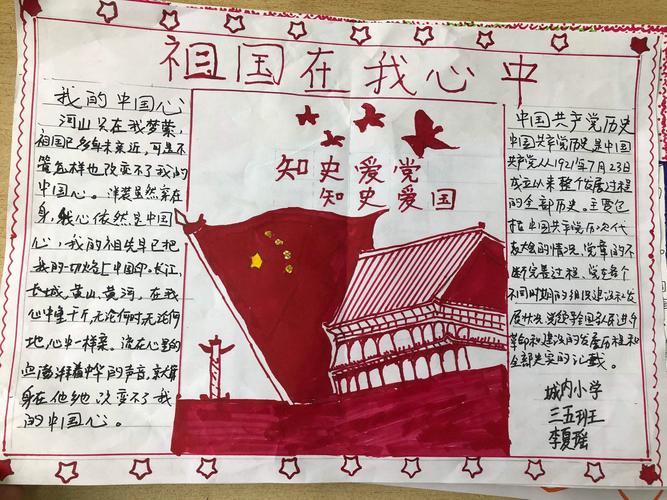 祖国在我心中
我的中国心
河山只在我梦萦,
祖国已多年未亲近,可是不
管怎样也改变不了我的
中国心。洋装虽然穿在
身,我心依然是中国
心,我的祖先早已把
我的一切烙上中国印。长江,
长城,黄山,黄河,在我
心中重千斤,无论何时无论何
地,心中一样亲。流在心里的
血澎湃着中华的声音,就算
身在他乡也改变不了我
的中国心。
知史爱党
知史爱国
中国共产党历史
中国共产党历史是中国
共产党人从1921年7月23日
成立以来整个发展过程
的全部历史。主要包
括中国共产党历次代
表大会的情况、党章的不
断完善过程、党在每个
不同时期的组织建设和发
展状况、党领导全国人民进行
革命和建设的发展历程和
全部史实的记载。
城内小学
三五班王
李夏瑶